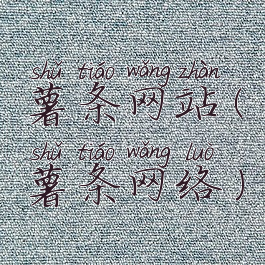 shǔ tiáo wǎng zhàn
薯条网站(
shǔ tiáo wǎng luò
薯条网络)